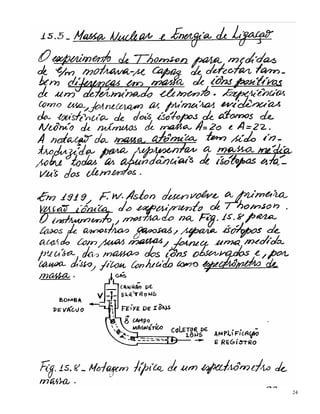 15.5_ Massa Nuclear e Energia de Ligação
O experimento de Thomson para medidas
de e/m mostrava-se capaz de detectar tam-
bém diferenças em massa de íons positivos
de um determinado elemento. Experiências
como essa, forneceram as primeiras evidências
da existência de dois isótopos de átomos de
Neônio de números de massa A=20 e A=22.
A notação da massa atômica tem sido in-
troduzida para representar a massa média
sobre todas as abundânciais de isótopos está-
veis dos elementos.
Em 1919, F.W. Aston desenvolve a primeira
versão iônica do experimento de Thomson.
O instrumento, mostrado na Fig. 15.8 para
casos de amostras gasosas, separa isótopos de
acordo com suas massas, fornece uma medida
precisa das massas dos íons observados e, por
causa disso, ficou conhecido como espectrômetro de
massa.
GÁS
CANHÃO DE
ELÉTRONS
BOMBA
DE VÁCUO
FEIXE DE ÍONS
CAMPO
MAGNÉTICO
COLETOR DE
IONS
AMPLIFICAÇÃO
E REGISTRO
Fig. 15.8_ Montagem típica de um espectrômetro de
massa.
24